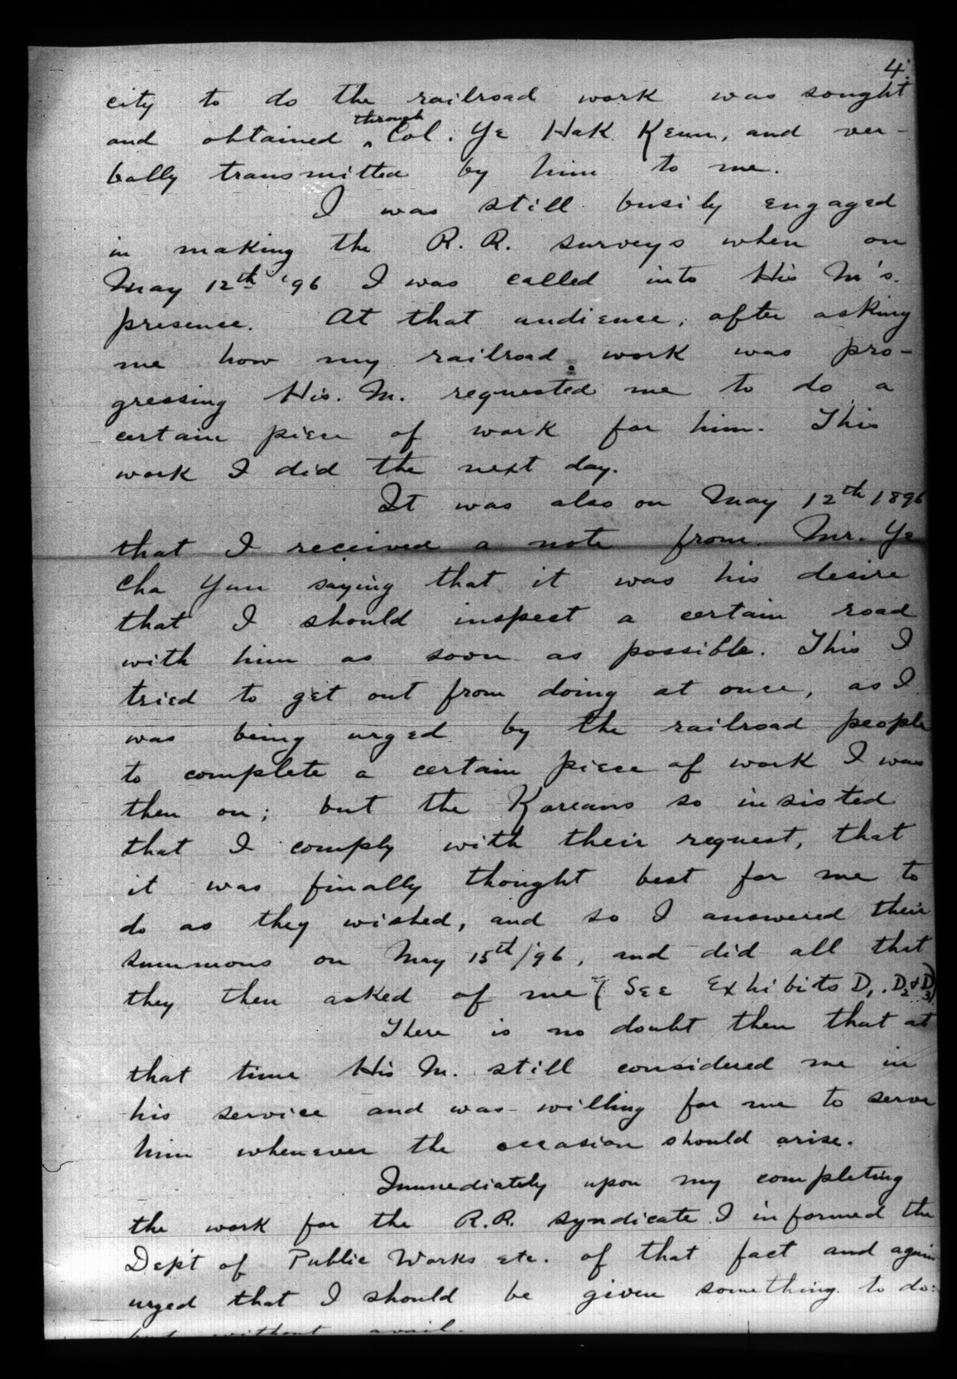 4.
city to do the railroad work was sought
and obtained through Col. Ye Hak Keun, and ver-
bally transmitted by him to me.
I was still busily engaged
in making the R. R. surveys when on
May 12th '96 I was called into His M's.
presence. At that audience, after asking
me how my railroad work was pro-
gressing His. M. requested me to do a
certain piece of work for him. This
work I did the next day.
It was also on May 12th 1896
that I received a note from Mr. Ye
Cha Yun saying that it was his desire
that I should inspect a certain road
with him as soon as possible. This I
tried to get out from doing at once, as I
was being urged by the railroad people
to complete a certain piece of work I was
then on; but the Koreans so insisted
that I comply with their request, that
it was finally thought best for me to
do as they wished, and so I answered their
summons on May 15th/96, and did all that
they then asked of me (See Exhibits D1, D2 & D3)
There is no doubt then that at
that time His M. still considered me in
his service and was willing for me to serve
him whenever the occasion should arise.
Immediately upon my completing
the work for the R.R. syndicate I informed the
Dep't of Public Works etc. of that fact and again
urged that I should be given something to do:
but without avail.